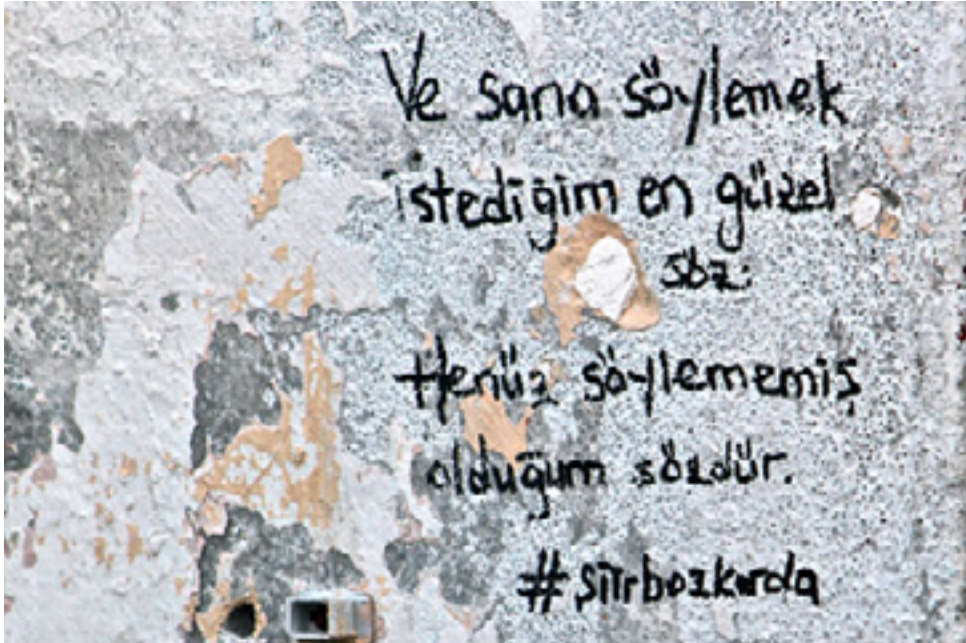 Ve sana söylemek
istediğim en güzel
söz:
Henüz söylememiş
olduğum sözdür.
#şiirbozkırda